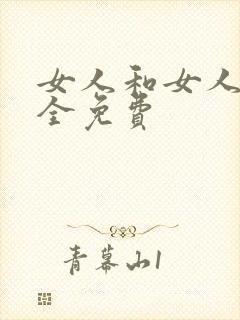 女人和女人
全免费
青幕山1